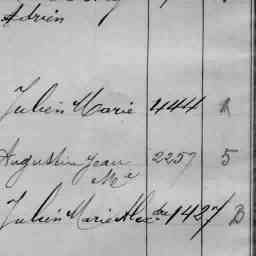 Adrien
Julien Marie 444 R
Augustin Jean 2257 5
Me
Julien Marie Alex.dre 1427 B